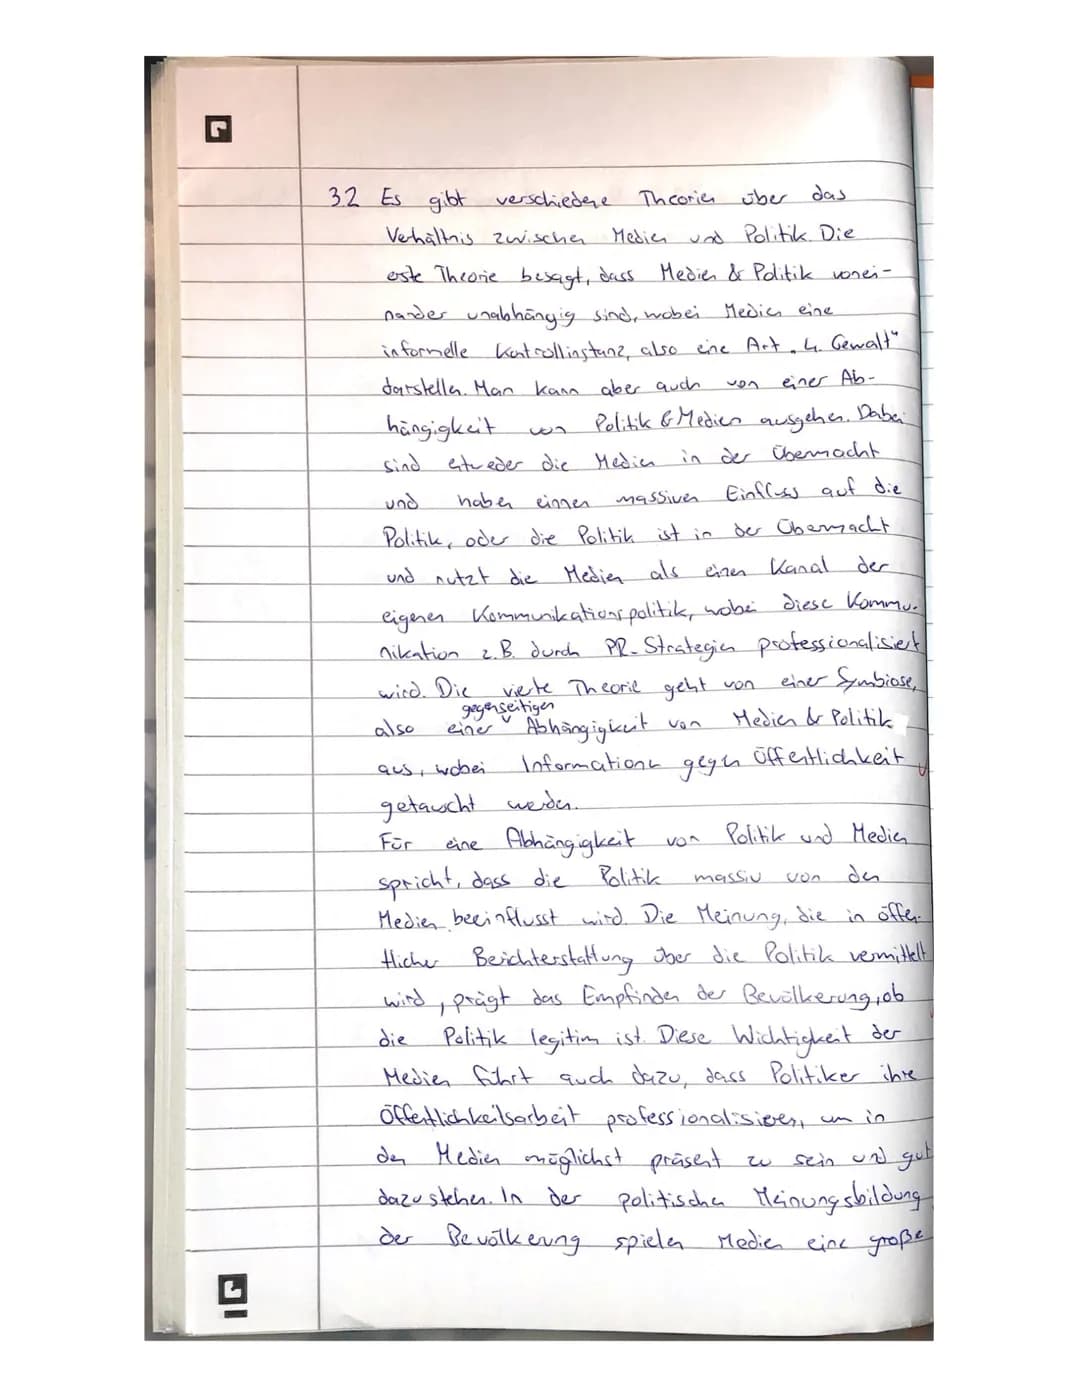 3.2 Es gibt verschiedene Theorien über das
Verhältnis zwischen Medien und Politik. Die
erste Theorie besagt, dass Medien & Politik vonei-
nander unabhängig sind, wobei Medien eine
informelle Kontrollinstanz, also eine Art „4. Gewalt“
darstellen. Man kann aber auch von einer Ab-
hängigkeit von Politik & Medien ausgehen. Dabei
sind entweder die Medien in der Übermacht
und haben einen massiven Einfluss auf die
Politik, oder die Politik ist in der Übermacht
und nutzt die Medien als einen Kanal der
eigenen Kommunikationspolitik, wobei diese Kommu-
nikation z.B. durch PR-Strategien professionalisiert
wird. Die vierte Theorie geht von einer Symbiose,
also einer gegenseitigen Abhängigkeit von Medien & Politik
aus, wobei Informationen gegen Öffentlichkeit
getauscht werden.
Für eine Abhängigkeit von Politik und Medien
spricht, dass die Politik massiv von den
Medien beeinflusst wird. Die Meinung, die in öffen-
tlicher Berichterstattung über die Politik vermittelt
wird, prägt das Empfinden der Bevölkerung, ob
die Politik legitim ist. Diese Wichtigkeit der
Medien führt auch dazu, dass Politiker ihre
Öffentlichkeitsarbeit professionalisieren, um in
den Medien möglichst präsent zu sein und gut
dazustehen. In der politischen Meinungsbildung
der Bevölkerung spielen Medien eine große